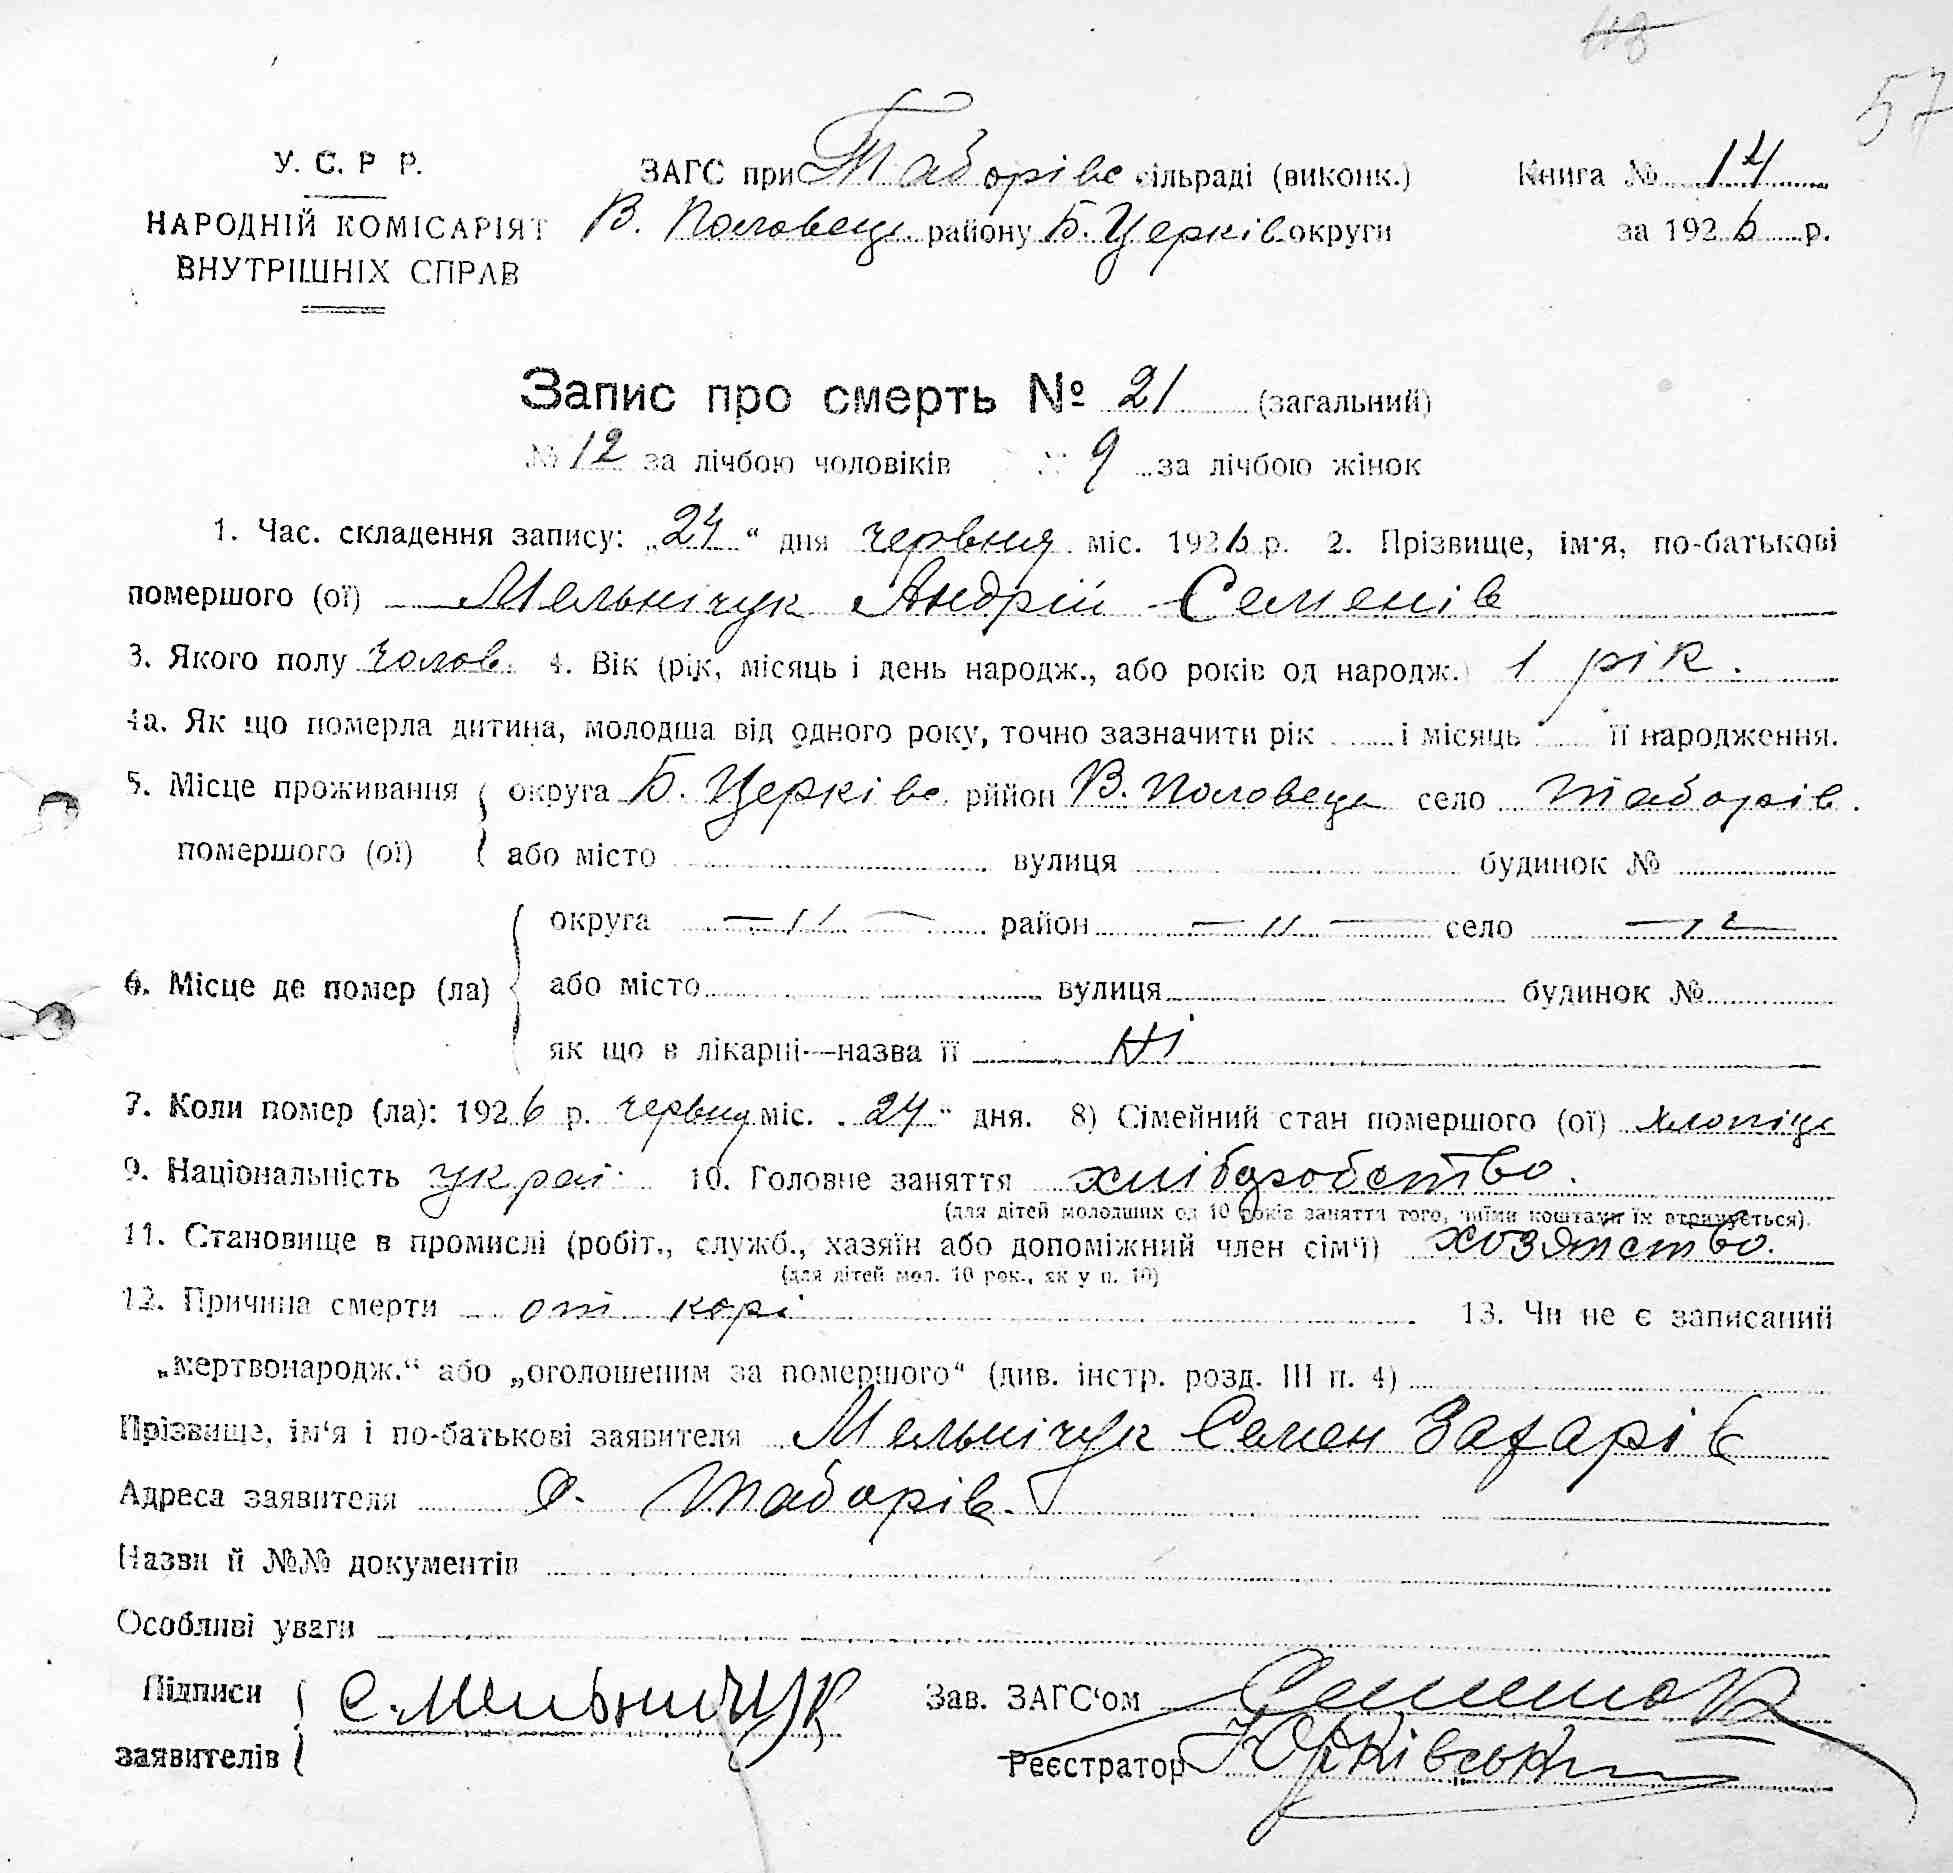 48
57
У. С. Р Р.
ЗАГС при Таборівс сільраді (виконк.) Книга № 14
НАРОДНІЙ КОМІСАРІЯТ В. Половець району Б. Церків округи за 1926 р.
ВНУТРІШНІХ СПРАВ
Запис про смерть № 21 (загальний)
№ 12 за лічбою чоловіків № 9 за лічбою жінок
1. Час. складення запису: „24“ дня червня міс. 1926 р. 2. Прізвище, ім'я, по-батькові
помершого (ої) Мельнічук Андрій Семенів
3. Якого полу чолов. 4. Вік (рік, місяць і день народж., або років од народж.) 1 рік.
4а. Як що померла дитина, молодша від одного року, точно зазначити рік і місяць її народження.
5. Місце проживання округа Б. Церківс. рийон В. Половець село Таборів.
помершого (ої) або місто вулиця будинок №
округа —〃— район —〃— село —〃—
6. Місце де помер (ла) або місто вулиця будинок №
як що в лікарні—назва її Ні
7. Коли помер (ла): 1926 р. червня міс. „24“ дня. 8) Сімейний стан помершого (ої) хлопіць
9. Національність украї 10. Головне заняття хліборобство.
(для дітей молодших од 10 років заняття того, чиїми коштами їх отримується).
11. Становище в промислі (робіт., служб., хазяїн або допоміжний член сім'ї) хозяйство.
(для дітей мол. 10 рок., як у п. 10)
12. Причина смерти от корі 13. Чи не є записаний
„мертвонародж.“ або „оголошеним за помершого“ (див. інстр. розд. III п. 4)
Прізвище, ім'я і по-батькові заявителя Мельнічук Семен Захарів
Адреса заявителя с. Таборів.
Назви й №№ документів
Особливі уваги
Підписи С. Мельничук Зав. ЗАГС'ом
заявителів Реєстратор Юрківський